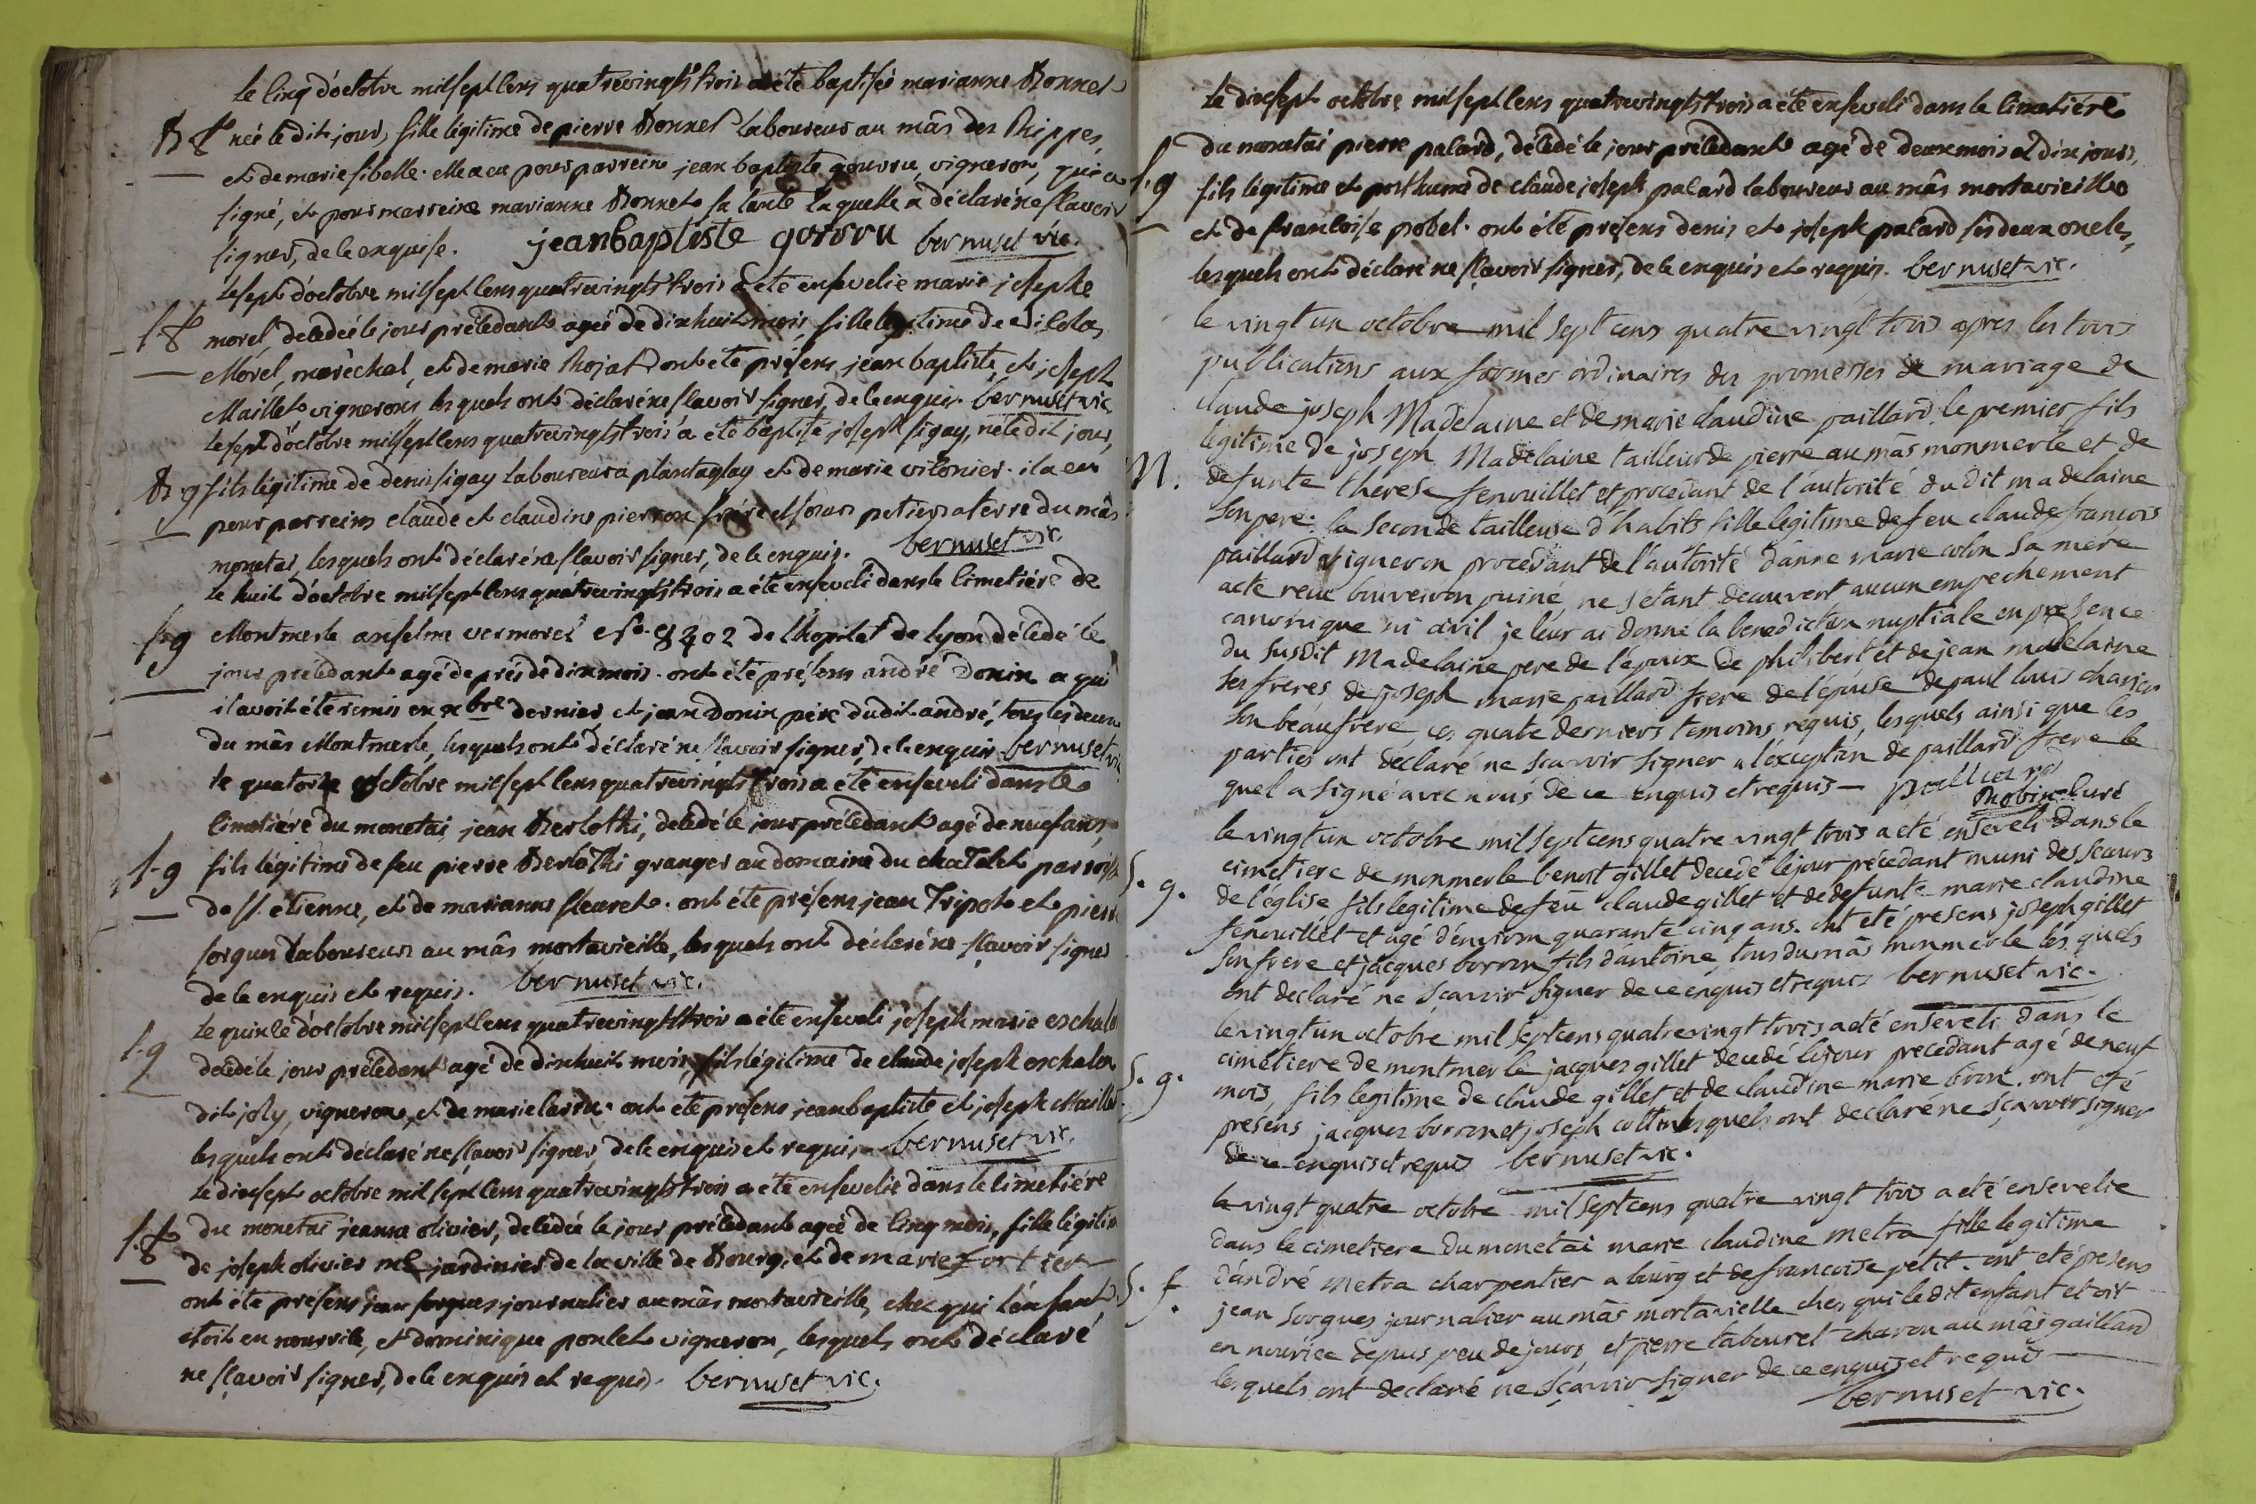 Le cinq d'octobre mil sept cens quatrevingts trois a été baptisée marianne Bonnet
B f née le dit jour, fille légitime de pierre Bonnet laboureur au mâs des Rippes,
et de marie sibelle. elle a eu pour parrein jean baptiste gourru, vigneron, qui a
signé, et pour marreine marianne Bonnet sa tante laquelle a déclaré ne sçavoir
signer, de ce enquise. jean baptiste gorovu bernuset vic.
Le sept d'octobre mil sept cens quatrevingts trois a été ensevelie marie josephe
S f morel decedée le jour précédant agée de dix huit mois, fille légitime de Nicolas
Morel, maréchal, et de marie Rojat ont été présens jean baptiste et joseph
Maillet vignerons lesquels ont déclaré ne sçavoir signer, de ce enquis. bernuset vic
Le sept d'octobre mil sept cens quatrevingts trois a été baptisé joseph sigay, né le dit jour,
B g fils légitime de denis sigay laboureur a plantaglay et de marie vitonier. il a eu
pour parreins claude et claudine pierron frére et soeur potiers a terre du mâs
monetai, lesquels ont déclaré ne sçavoir signer, de ce enquis. bernuset vic
Le huit d'octobre mil sept cens quatrevingts trois a été enseveli dans le cimetiére de
S g Montmerle anselme vermorel 8402 de l'hopital de lyon décédé le
jour précédant agé de prés de dix mois. ont été présens andré Donin a qui
il avoit été remis en xbre dernier et jean Donin pére dudit andré, tous les deux
du mâs Montmerle, lesquels ont déclaré ne sçavoir signer, de ce enquis bernuset vic
Le quatorze octobre mil sept cens quatrevingts trois a été enseveli dans le
cimetiére du monetai jean Berlothi, decédé le jour précédant agé de neuf ans,
S g fils légitime de feu pierre Berlothi granger au domaine du chatelet paroisse
de St. étienne, et de marianne fleuret. ont été présens jean Tripot et pierre
sorgues laboureurs au mâs mortavieille, lesquels ont déclaré ne sçavoir signer
de ce enquis et requis. bernuset vic.
Le quinze d'octobre mil sept cens quatrevingts trois a été enseveli joseph marie eschalon
S g décédé le jour précédant agé de dix huit mois, fils légitime de claude joseph eschalon
dit joly, vigneron, et de marie carru. ont été présens jean baptiste et joseph Maillet
lesquels ont déclaré ne sçavoir signer, de ce enquis et requis bernuset vic.
Le dix sept octobre mil sept cens quatrevingts trois a été ensevelie dans le cimetiére
S f du monetai jeanne olivier, decedée le jour précédant agée de cinq mois, fille légitime
de joseph olivier me jardinier de la ville de Bourg, et de marie fortier
ont été présens jean sorgues journalier au mâs mortavieille, chez qui l'enfant
étoit en nourrice, et dominique poncet vigneron, lesquels ont déclaré
ne sçavoir signer, de ce enquis et requis. bernuset vic.
Le dix sept octobre mil sept cens quatrevingts trois a été enseveli dans le cimetiére
du monetai pierre palard, décédé le jour précédant agé de deux mois et dix jours,
S g fils légitime et posthume de claude joseph palard laboureur au mâs mortavieille
et de francoise pobel. ont été présens denis et joseph palard ses deux oncles,
lesquels ont déclaré ne sçavoir signer, de ce enquis et requis. bernuset vic.
le vingt un octobre mil sept cens quatre vingt trois apres les trois
publications aux formes ordinaires des promesses de mariage de
claude joseph Madelaine et de marie claudine paillard. le premier fils
légitime de joseph Madelaine tailleur de pierre au mâs monmerle et de
M. defunte therese fenouillet et procedant de l'autorité du dit madelaine
son pere. la seconde tailleuse d'habits fille legitime de feu claude francois
paillard vigneron procedant de l'autorité d'anne marie colon sa mere
acte recu bouveiron puiné, ne s'etant decouvert aucun empechement
canonique ni civil je leur ai donné la benediction nuptiale en presence
du susdit Madelaine pere de l'époux de philibert et de jean madelaine
ses freres de joseph marie paillard frere de l'épouse de paul louis charier
son beaufrere ces quatre derniers temoins requis, lesquels ainsi que les
parties ont déclaré ne scavoir signer a l'éxception de paillard frere le
quel a signé avec nous de ce enquis et requis paillard
Robin curé
le vingt un octobre mil sept cens quatre vingt trois a eté enseveli dans le
cimetiere de monmerle benoit gillet decedé le jour précédant muni des secours
S. g. de l'église fils legitime de feu claude gillet et de defunte marie claudine
fenouillet et agé d'environ quarante cinq ans. ont eté presens joseph gillet
son frere et jacques borron fils d'antoine, tous du mâs monmerle les quels
ont declaré ne scavoir signer de ce enquis et requis bernuset vic.
le vingt un octobre mil sept cens quatre vingt trois a eté enseveli dans le
cimetiere de montmerle jacques gillet decedé le jour precedant agé de neuf
S. g. mois, fils legitime de claude gillet et de claudine marie bron. ont été
présens jacques borron et joseph collin lesquels ont declaré ne sçavoir signer
de ce enquis et requis bernuset vic.
le vingt quatre octobre mil sept cens quatre vingt trois a eté ensevelie
dans le cimetiere du monetai marie claudine metra fille legitime
d'andré metra charpentier a bourg et de francoise petit. ont eté presens
S. f. jean sorgues journalier au mâs mortavielle ches qui le dit enfant etoit
en nourice depuis peu de jours et pierre tabouret charon au mâs gaillard
lesquels ont declaré ne sçavoir signer de ce enquis et requis
bernuset vic.